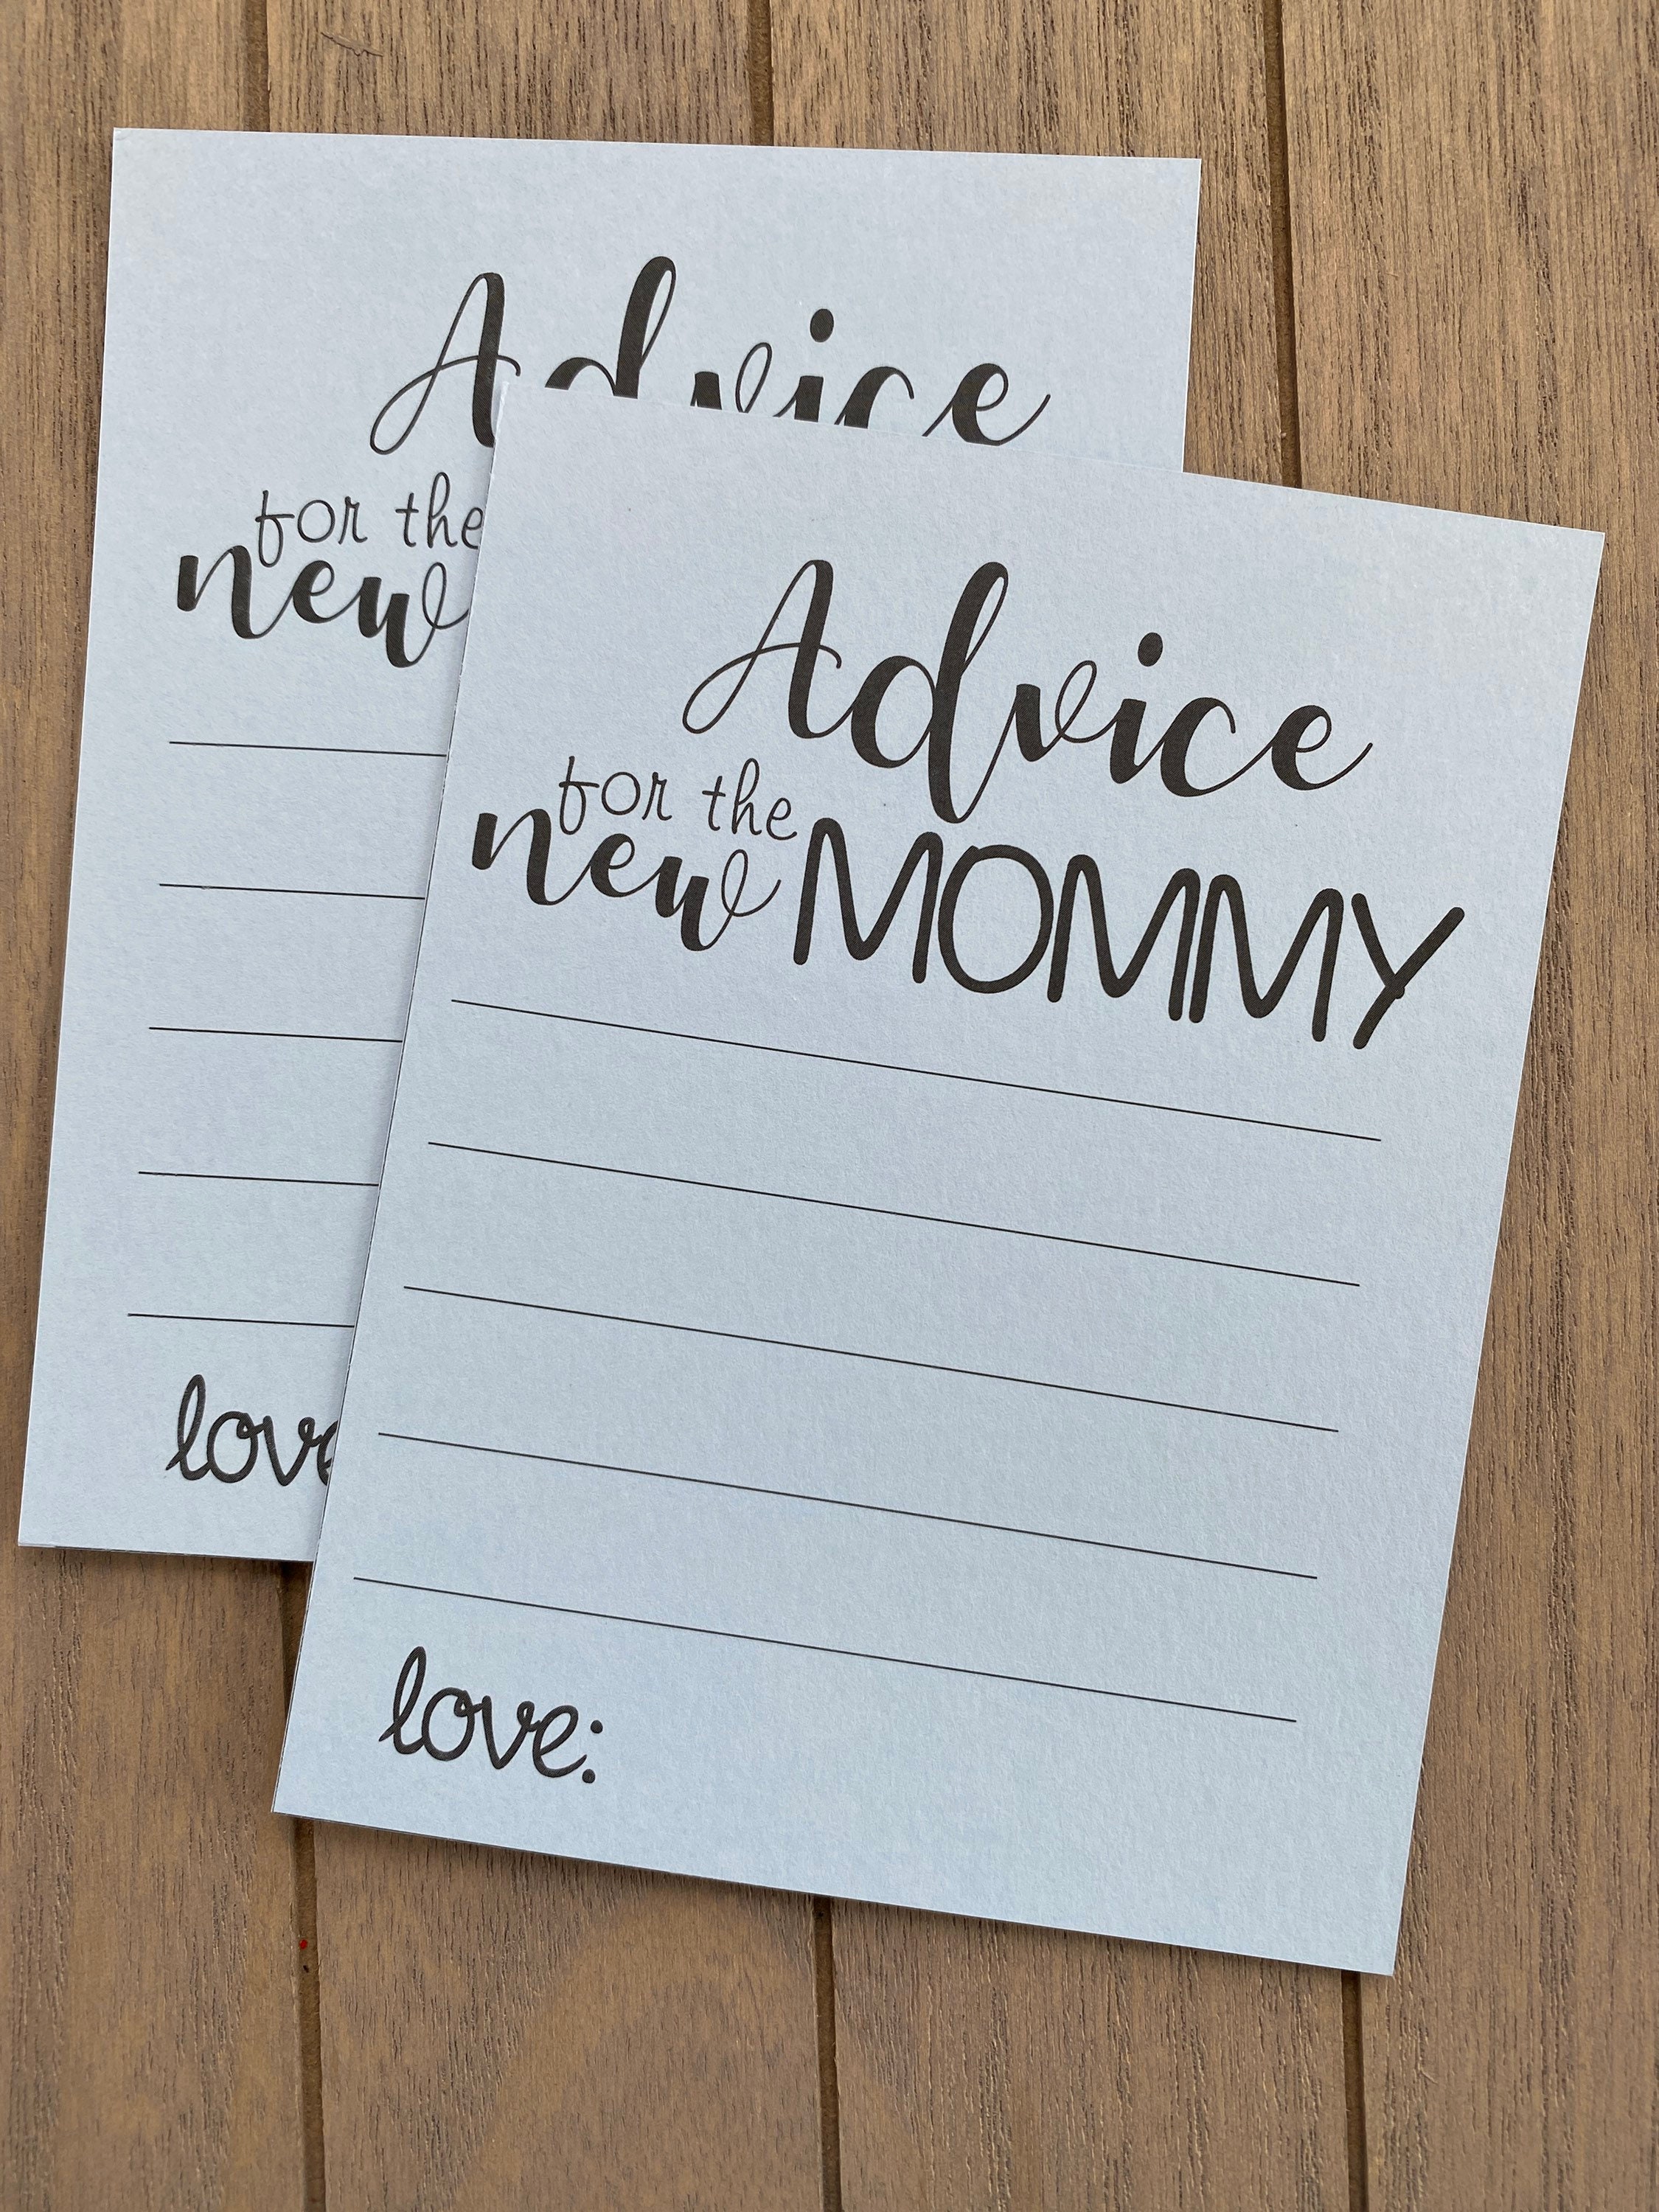 Advice
for the
new
love
Advice
for the
new MOMMY
love: